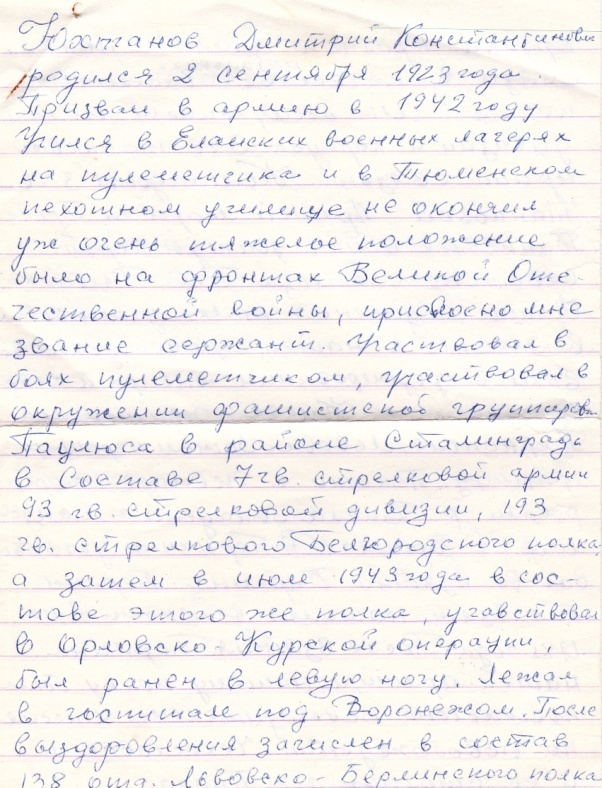 Юхтанов Дмитрий Константинович
родился 2 сентября 1923 года.
Призван в армию в 1942 году
Учился в Еланских военных лагерях
на пулеметчика и в Тюменском
пехотном училище не окончил
уж очень тяжелое положение
было на фронтах Великой Оте-
чественной войны, присвоено мне
звание сержант. Участвовал в
боях пулеметчиком, участвовал в
окружении фашистской группировки
Паулюса в районе Сталинграда
в составе 7 гв. стрелковой армии
93 гв. стрелковой дивизии, 193
гв. стрелкового Белгородского полка
а затем в июле 1943 года в сос-
таве этого же полка, учавствовал
в Орловско-Курской операции,
был ранен в левую ногу. Лежал
в госпитале под Воронежом. После
выздоровления зачислен в состав
138 отд. Львовско-Берлинского полка